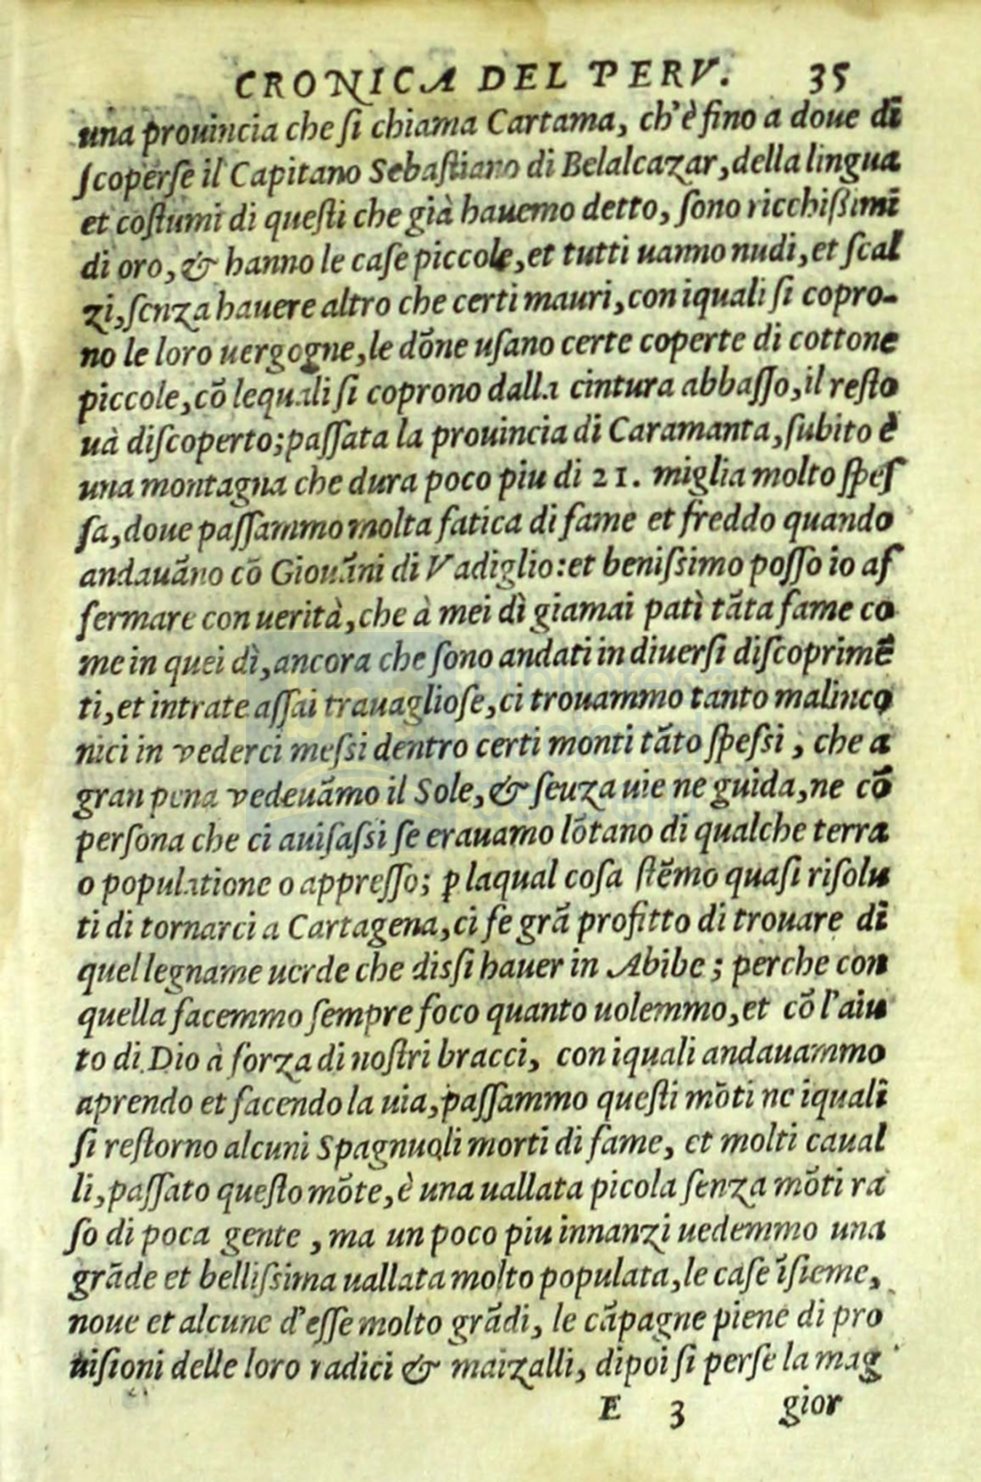 CRONICA DEL PERV. 35
una prouincia che ſi chiama Cartama, ch'è fino a doue di
ſcoperſe il Capitano Sebaſtiano di Belalcazar, della lingua
et coſtumi di queſti che già hauemo detto, ſono ricchiſsimi
di oro, & hanno le caſe piccole, et tutti uanno nudi, et ſcal
zi, ſenza hauere altro che certi mauri, con iquali ſi copro-
no le loro uergogne, le dõne uſano certe coperte di cottone
piccole, cõ lequali ſi coprono dalla cintura abbaſſo, il reſto
uà diſcoperto; paſſata la prouincia di Caramanta, ſubito è
una montagna che dura poco piu di 21. miglia molto ſpeſ
ſa, doue paſſammo molta fatica di fame et freddo quando
andauãno cõ Giouãni di Vadiglio: et beniſsimo poſſo io af
fermare con uerità, che à mei dì giamai patì tãta fame co
me in quei dì, ancora che ſono andati in diuerſi diſcoprimẽ
ti, et intrate aſſai trauaglioſe, ci trouammo tanto malinco
nici in vederci meſsi dentro certi monti tãto ſpeſsi, che a
gran pena vedeuãmo il Sole, & ſeuza uie ne guida, ne cõ
perſona che ci auiſaſsi ſe erauamo lõtano di qualche terra
o populatione o appreſſo; ꝑ laqual coſa ſtẽmo quaſi riſolu
ti di tornarci a Cartagena, ci fe grã profitto di trouare di
quel legname uerde che diſsi hauer in Abibe; perche con
quella facemmo ſempre foco quanto uolemmo, et cõ l'aiu
to di Dio à forza di noſtri bracci, con iquali andauammo
aprendo et facendo la uia, paſſammo queſti mõti ne iquali
ſi reſtorno alcuni Spagnuoli morti di fame, et molti caual
li, paſſato queſto mõte, è una uallata picola ſenza mõti ra
ſo di poca gente, ma un poco piu innanzi uedemmo una
grãde et belliſsima uallata molto populata, le caſe ĩſieme,
noue et alcune d'eſſe molto grãdi, le cãpagne piene di pro
uiſioni delle loro radici & maizalli, dipoi ſi perſe la mag
E 3 gior